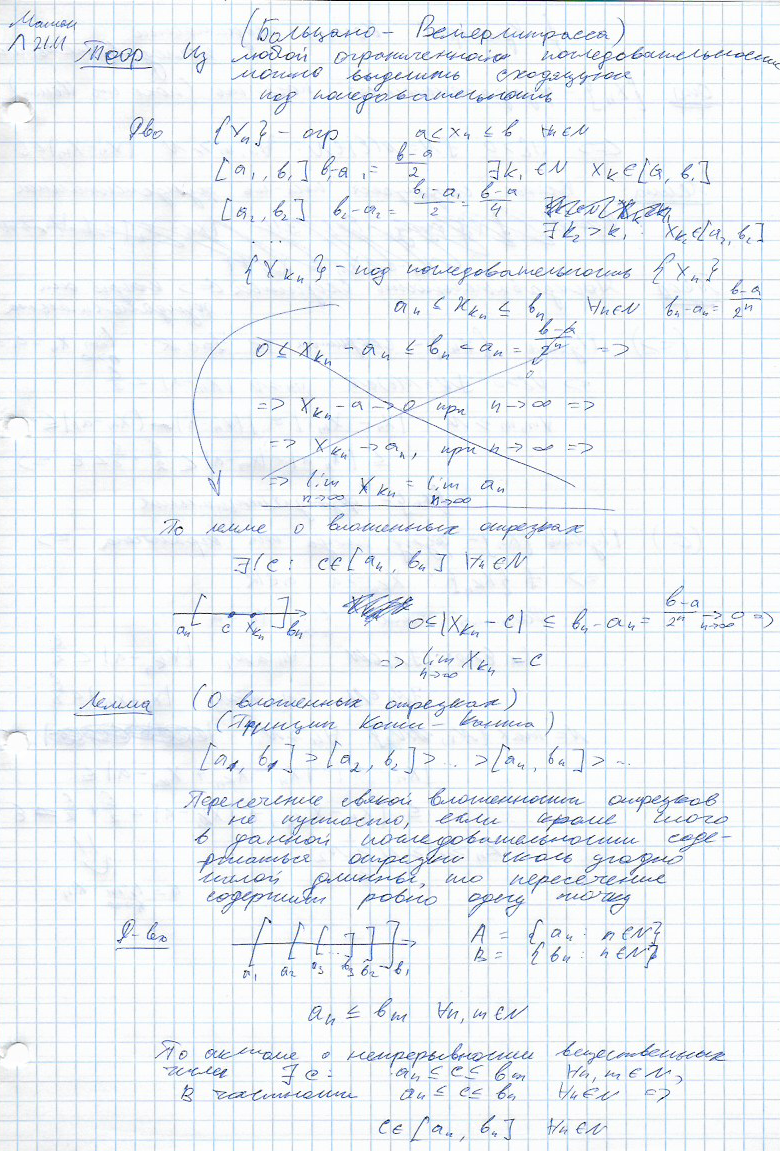 Матан
Л 21.11
(Больцано - Вейерштрасса)
Теор Из любой ограниченной последовательности
можно выделить сходящуюся
под последовательность
Д-во {Xn} - огр a ≤ xn ≤ b ∀n∈N
[a1, b1] b1-a1 = (b-a)/2 ∃k1 ∈ N xk ∈ [a1, b1]
[a2, b2] b2-a2 = (b1-a1)/2 = (b-a)/4
∃k2 > k1 xk2 ∈ [a2, b2]
...
{Xkn} - под последовательность {Xn}
an ≤ xkn ≤ bn ∀n∈N bn-an = (b-a)/2^n
0 ≤ Xkn - an ≤ bn - an = (b-a)/2^n =>
0
=> Xkn - a → 0 при n→∞ =>
=> Xkn → an, при n→∞ =>
=> lim n→∞ Xkn = lim n→∞ an
По лемме о вложенных отрезках
∃!c: c∈[an, bn] ∀n∈N
an c xkn bn 0 ≤ |Xkn - c| ≤ bn - an = (b-a)/2^n → n→∞ 0 =>
=> lim n→∞ Xkn = c
Лемма (О вложенных отрезках)
(Принцип Коши - Кантора)
[a1, b1] > [a2, b2] > ... > [an, bn] > ...
Пересечение всякой вложенности отрезков
не пустость, если кроме того
в данной последовательности соде-
ржаться отрезки сколь угодно
малой длинны, то пересечение
содержит ровно одну точку
Д-во A = {an : n∈N}
B = {bn : n∈N}
a1 a2 a3 ... b3 b2 b1
an ≤ bm ∀n, m∈N
По аксиоме о непрерывности вещественных
чисел ∃c: an ≤ c ≤ bm ∀n, m∈N,
В частности an ≤ c ≤ bn ∀n∈N =>
c∈[an, bn] ∀n∈N